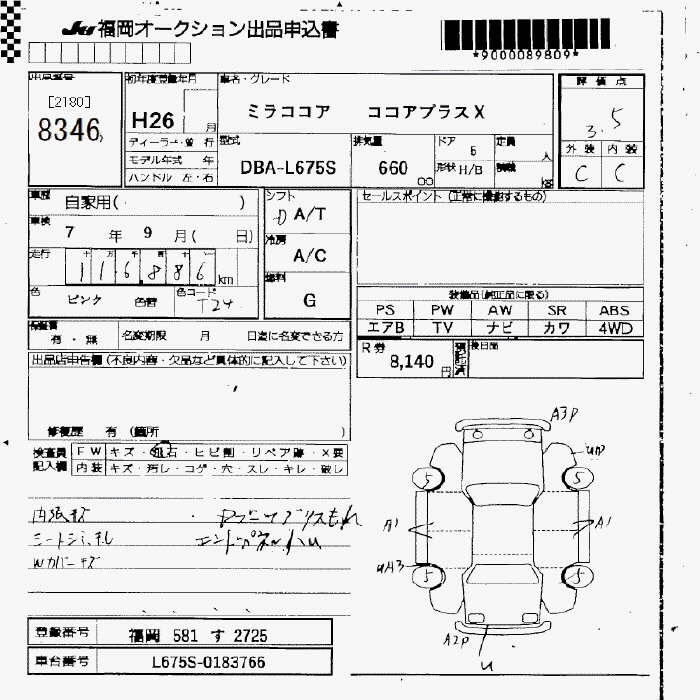 JU 福岡オークション出品申込書
*9000089809*
出品番号 初年度登録年月 車名・グレード 評価点
[2180]
8346 H26 月 ミラココア ココアプラスX 3.5
ディーラー・並行 型式 排気量 ドア 5 定員 人 外装 内装
モデル年式 年 DBA-L675S 660 形状 H/B 積載 kg C C
ハンドル 左・右 00
車歴 自家用( ) シフト D A/T セールスポイント (正常に撮影するもの)
車検 7 年 9 月( 日) 冷房 A/C
走行 十 万 千 百 十 一
116,886 km 燃料 G
色 ピンク 色替 色コード T24
装備品(純正品に限る)
PS PW AW SR ABS
エアB TV ナビ カワ 4WD
保証書 有・無 名変期限 月 日迄に名変できる方
R券 8,140 円 預託済 後日品
出品店申告欄 (不良内容・欠品など具体的に記入して下さい)
修復歴 有 (箇所 )
検査員記入欄 FW キズ・飛石・ヒビ割・リペア跡・X要
内装 キズ・汚レ・コゲ・穴・スレ・キレ・破レ
内張キズ
シートシミ、
Wカバーキズ
A3P
5 5
A1 A1
UA3
5 5
A2P
U
登録番号 福岡 581 す 2725
車台番号 L675S-0183766